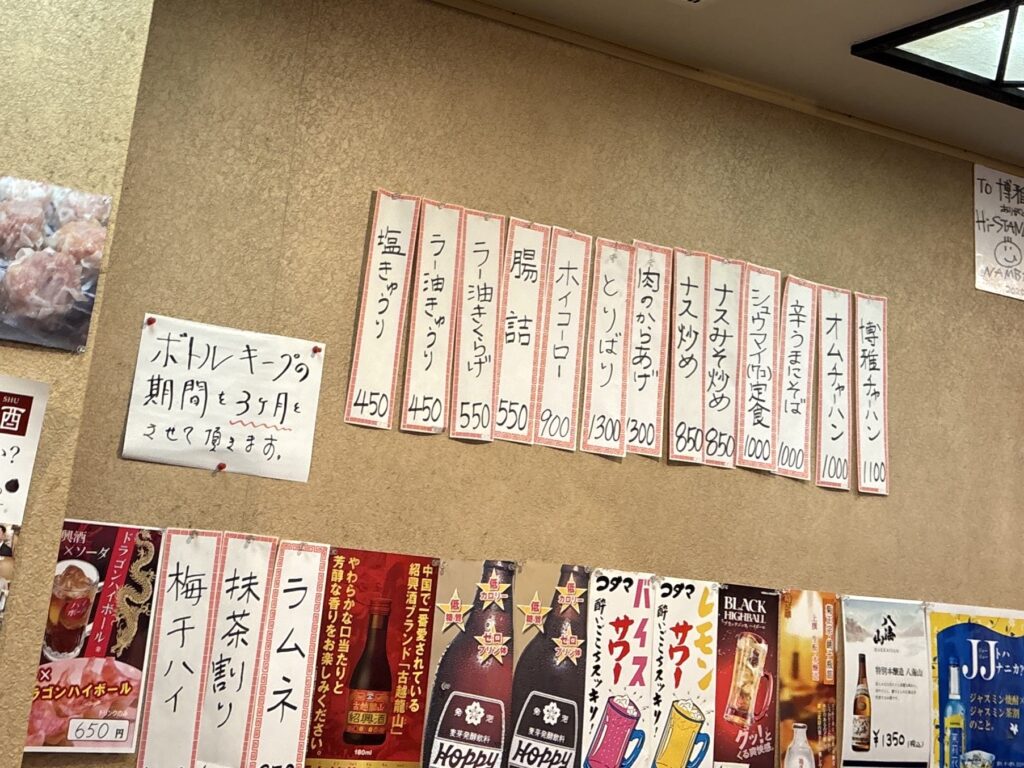 博雅チャーハン 1100
オムチャーハン 1000
辛うまにそば 1000
シュウマイ(7コ)定食 1000
ナスみそ炒め 850
ナス炒め 850
肉のからあげ 1300
とりばり 1300
ホイコーロー 900
腸詰 550
ラー油きくらげ 550
ラー油きゅうり 450
塩きゅうり 450
ボトルキープの
期間を3ヶ月と
させて頂きます。
To 博雅
Hi-STAN
NAMB
SHU
酒
い?
興酒
×ソーダ
ドラゴンハイボール。
ドラゴンハイボール
650円
梅干ハイ
抹茶割り
ラムネ
中国で一番愛されている
紹興酒ブランド「古越龍山」
やわらかな口当たりと
芳醇な香りをお楽しみください。
古越龍山
紹興酒
180ml
低カロリー
低糖質
ゼロプリン体
発泡
麦芽発酵飲料
HOPPY
低カロリー
低糖質
ゼロプリン体
発泡
麦芽発酵飲料
HOPPY
コダマ
バイスサワー
酔いごこちスッキリ!
コダマ
レモンサワー
酔いごこちスッキリ!
BLACK
HIGHBALL
グッ!と
くる爽快感。
八海山
特別本醸造 八海山
¥1350(税込)
JJ
トハ
ナニカ?
ジャスミン焼酎×
ジャスミン茶割
のこと。